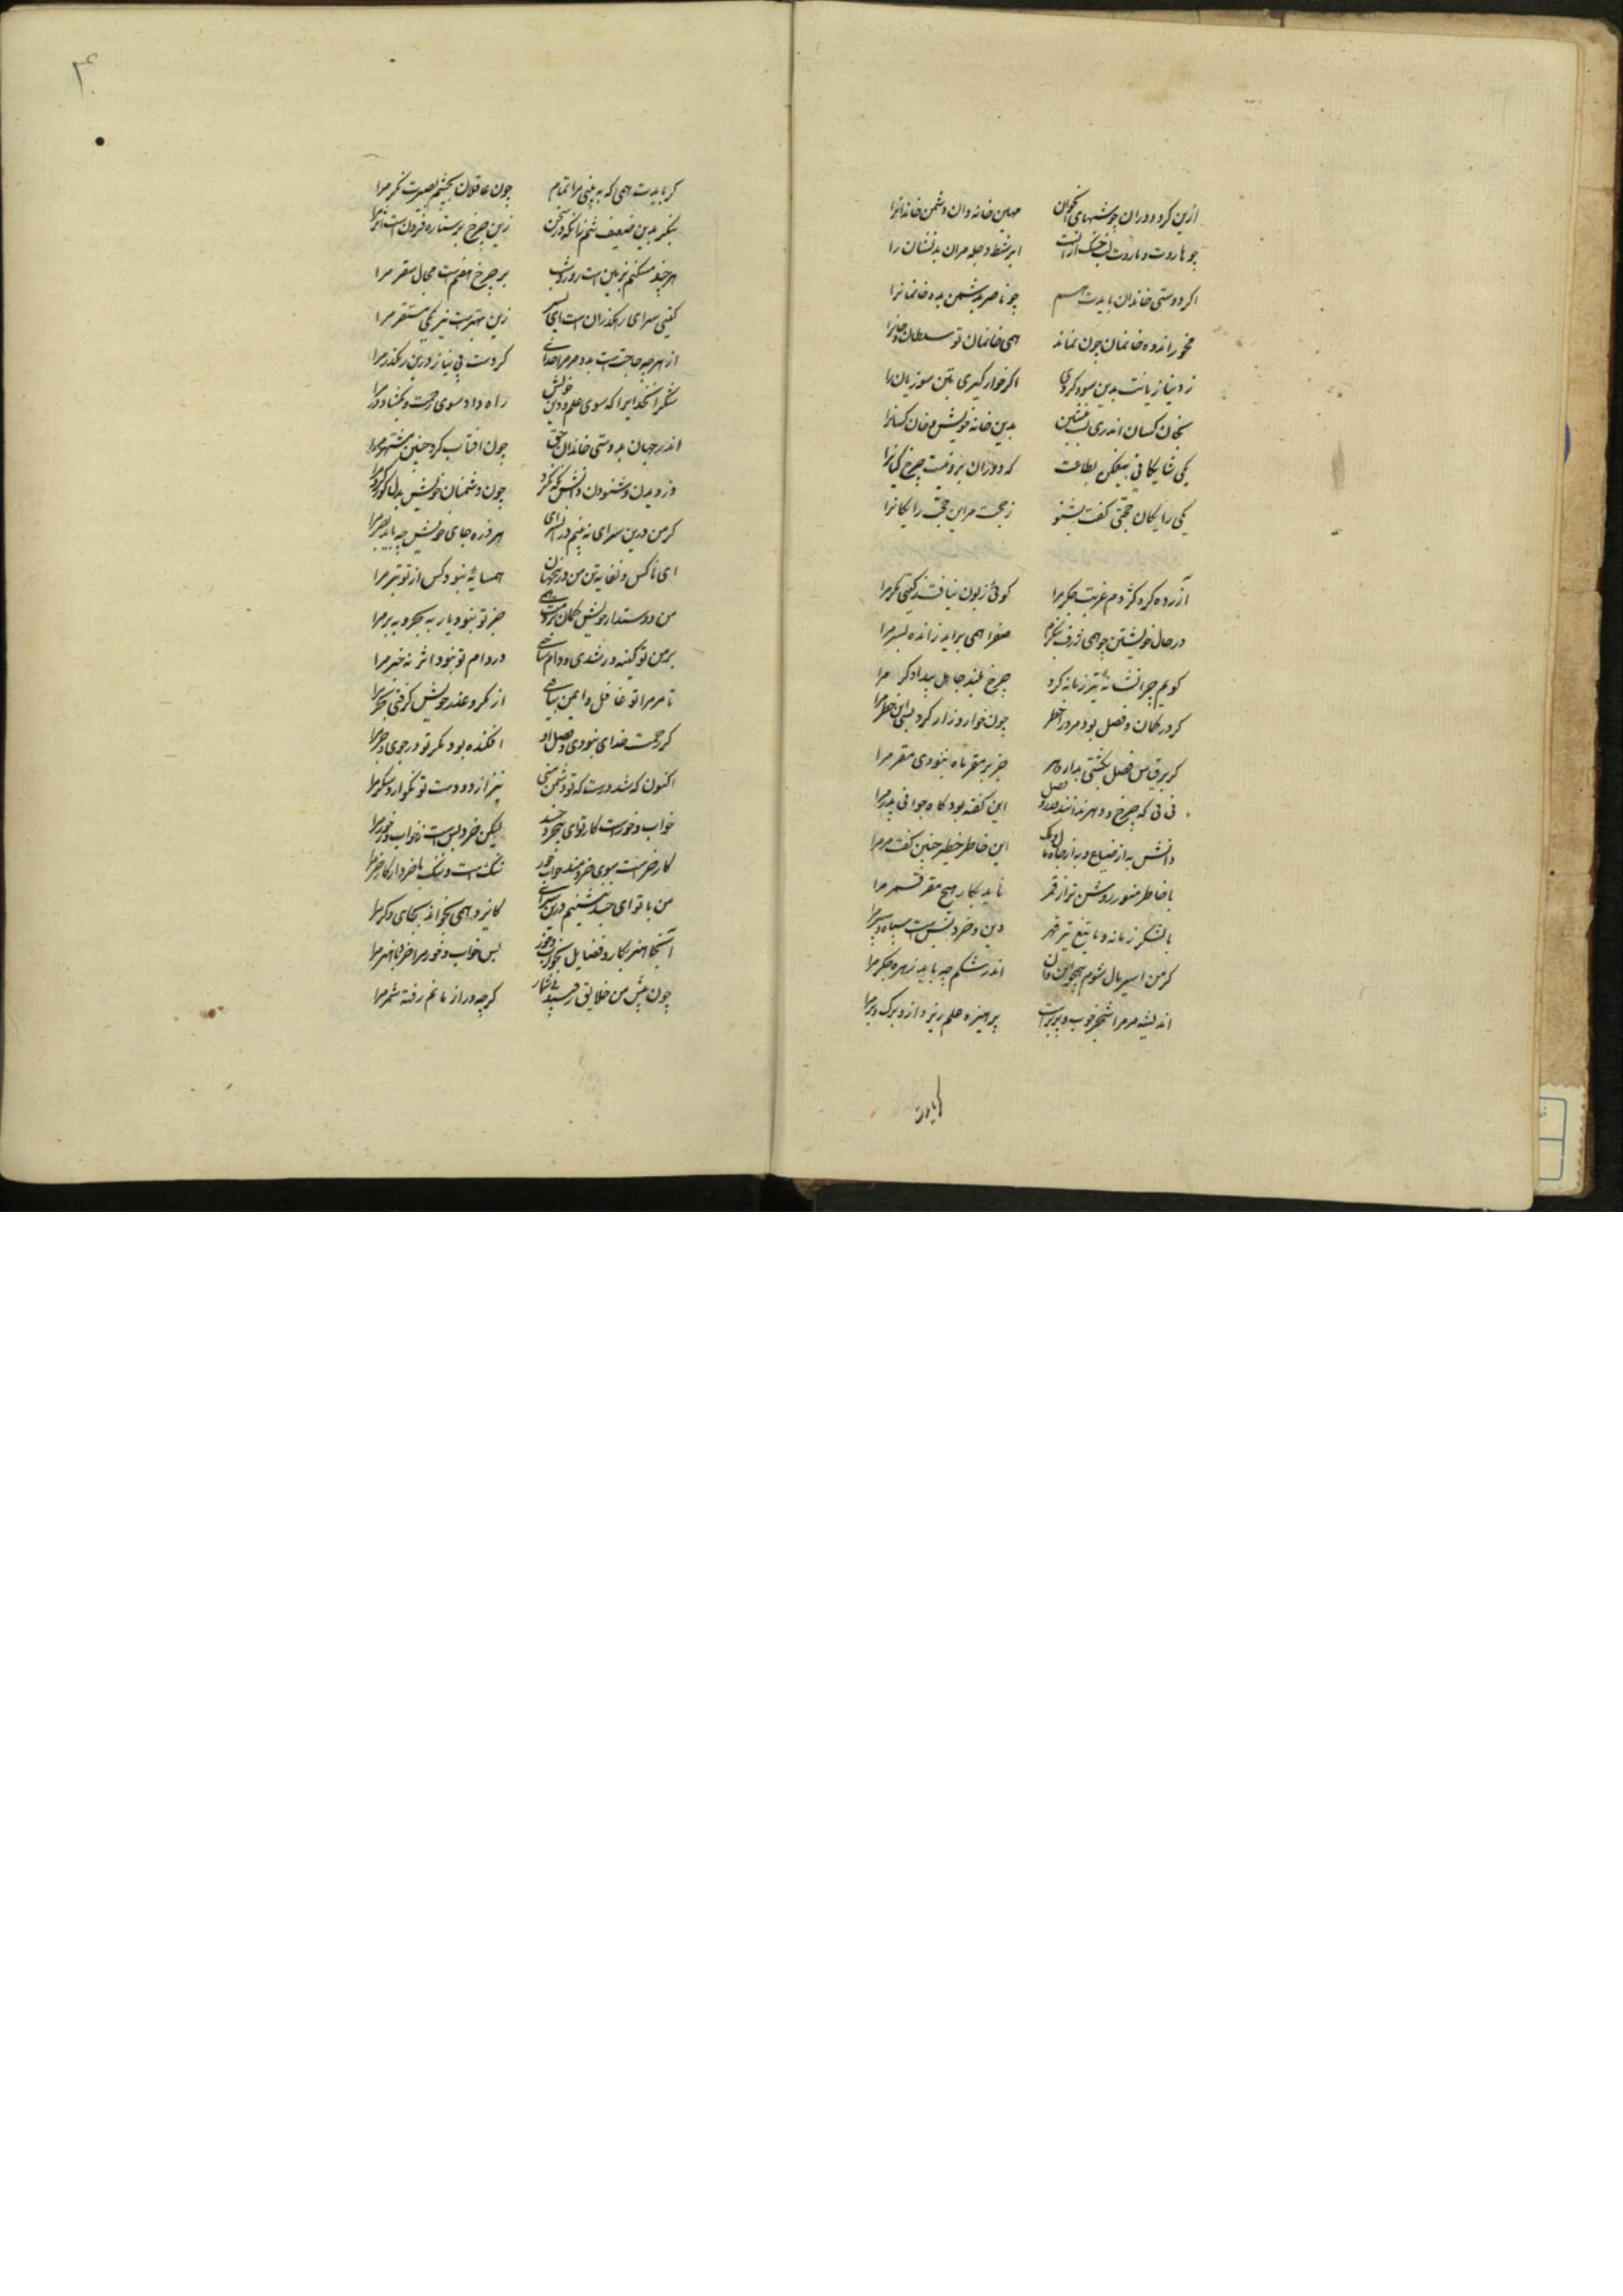 ازین کرد دوران چو شبهای
مهین خانه دان دشمن خاندانرا
چو هاروت و ماروت لب خشک از آنست
ابر شط و دجله مران بدنشان را
اکر دوستی خاندان بایدت هم
چو ناصر بدشمن بده خانمانرا
مخور اندوه خانمان چون نماند
همی خانمان تو سلطان و خانرا
ز دنیا زیانت بدین سود کردی
اکر خوار کیری بتن سوزیان را
بخان کسان اندری پست بنشین
بدین خانه خویش مخان کسانرا
یکی شایکانی بیفکن بطاعت
که دوران برو نیست چرخ کیانرا
یکی رایکان حجتی کفت بشنو
ز حجت مر این حجت رایکانرا
آزرده کرد کژدم غربت جکر مرا
کوئی زبون نیافت ز کیتی مکر مرا
در حال خویشتن چو همی ژرف بنکرم
صفرا همی براید ز انده بسر مرا
کویم چرا نشانهٔ تیر زمانه کرد
چرخ بلند جاهل بیدادکر مرا
کر در کمان و فضل بود مر در اخطر
چون خوار و زار کرد پس این خطر مرا
کر بر قیاس فضل بکشتی مدار دهر
جز بر مقر ماه نبودی مقر مرا
نی نی که چرخ و دهر ندانند قدر فضل
این کفته بود کاه جوانی پدر مرا
دانش به از ضیاع و به از جاه و مال و ملک
این خاطر خطیر چنین کفت مر مرا
با خاطر منور روشن تر از قمر
ناید بکار هیچ مقر قمر مرا
با لشکر زمانه و با تیغ تیز قهر
دین و خرد بس است سپاه و سپر مرا
کر من اسیر مال شوم همچو این و آن
اندر شکم چه باید زهره جکر مرا
اندیشه مر مرا شجر خوب و پربر است
پرهیز و علم ریزد ازو برک و بر مرا
کر بایدت
۴
کر بایدت همی که به بینی مرا تمام
چون عاقلان بچشم بصیرت نکر مرا
بنکر بدین ضعیف تنم زانکه در سخن
زین چرخ پر ستاره فزون است اثر مرا
هر چند مسکنم بزمین است روز و شب
بر چرخ هفتمست مجال سفر مرا
کیتی سرای رهکذران است ای پسر
زین بهترست نیز یکی مستقر مرا
از هر چه حاجت است بدو مر مرا خدای
کردست بی نیاز درین رهکذر مرا
شکر آنخدایرا که سوی علم و دین خویش
راه داد سوی رحمت و بکشاد در مرا
اندر جهان به دوستی خاندان حق
چون افتاب کرد چنین مشتهر مرا
وز دیدن و شنودن دانش یله نکرد
چون دشمنان خویش بدل کور و کر مرا
کر من درین سرای نه بینم در آن سرای
امروز جای خویش چه باید بصر مرا
ای ناکس و نفایه تن من درین جهان
همسایهٔ نبود کس از تو بتر مرا
من دوستدار خویش کمان بردمت همی
جز تو نبود یار به بحر و به بر مرا
بر من تو کینه ور شدی و دام ساختی
در دام تو نبود اثر نه خبر مرا
تا مر مرا تو غافل و ایمن بیافتی
از مکر و غدر خویش کرفتی سخر مرا
کر رحمت خدای نبودی و فضل او
افکنده بود مکر تو در جوی و جر مرا
اکنون که شد درست که تو دشمن منی
نیز از دو دست تو نکوارد شکر مرا
خواب و خورست کار تو ای بیخرد جسد
لیکن خرد بهست ز خواب و خور مرا
کار خرست سوی خردمند خواب و خور
ننک است و ننک با خرد از کار خر مرا
من با تو ای جسد ننشینم درین سرای
کایزد همی بخواند بجای دکر مرا
آنجا هنر بکار و فضایل نه خواب و خور
بس خواب و خور مرا خرد با هنر مرا
چون پیش من خلایق رفتند بیشمار
کرچه دراز مانم رفته شمر مرا